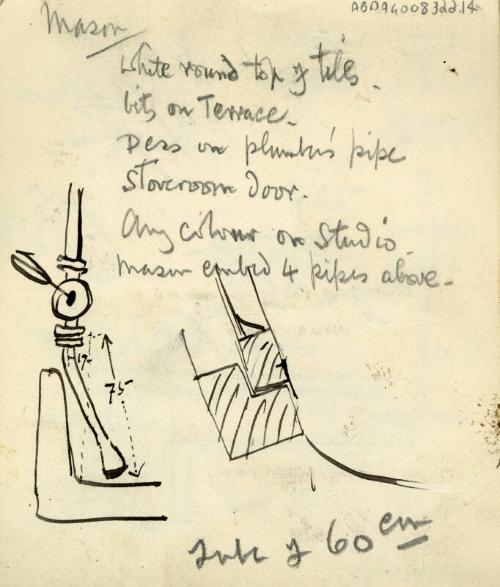 ABDAG008322.14
Mason
White round top of tiles.
bits on Terrace.
on plumber's pipe
Storeroom door.
Any colour on Studio.
Mason embed 4 pipes above.
19
75
of 60 cm